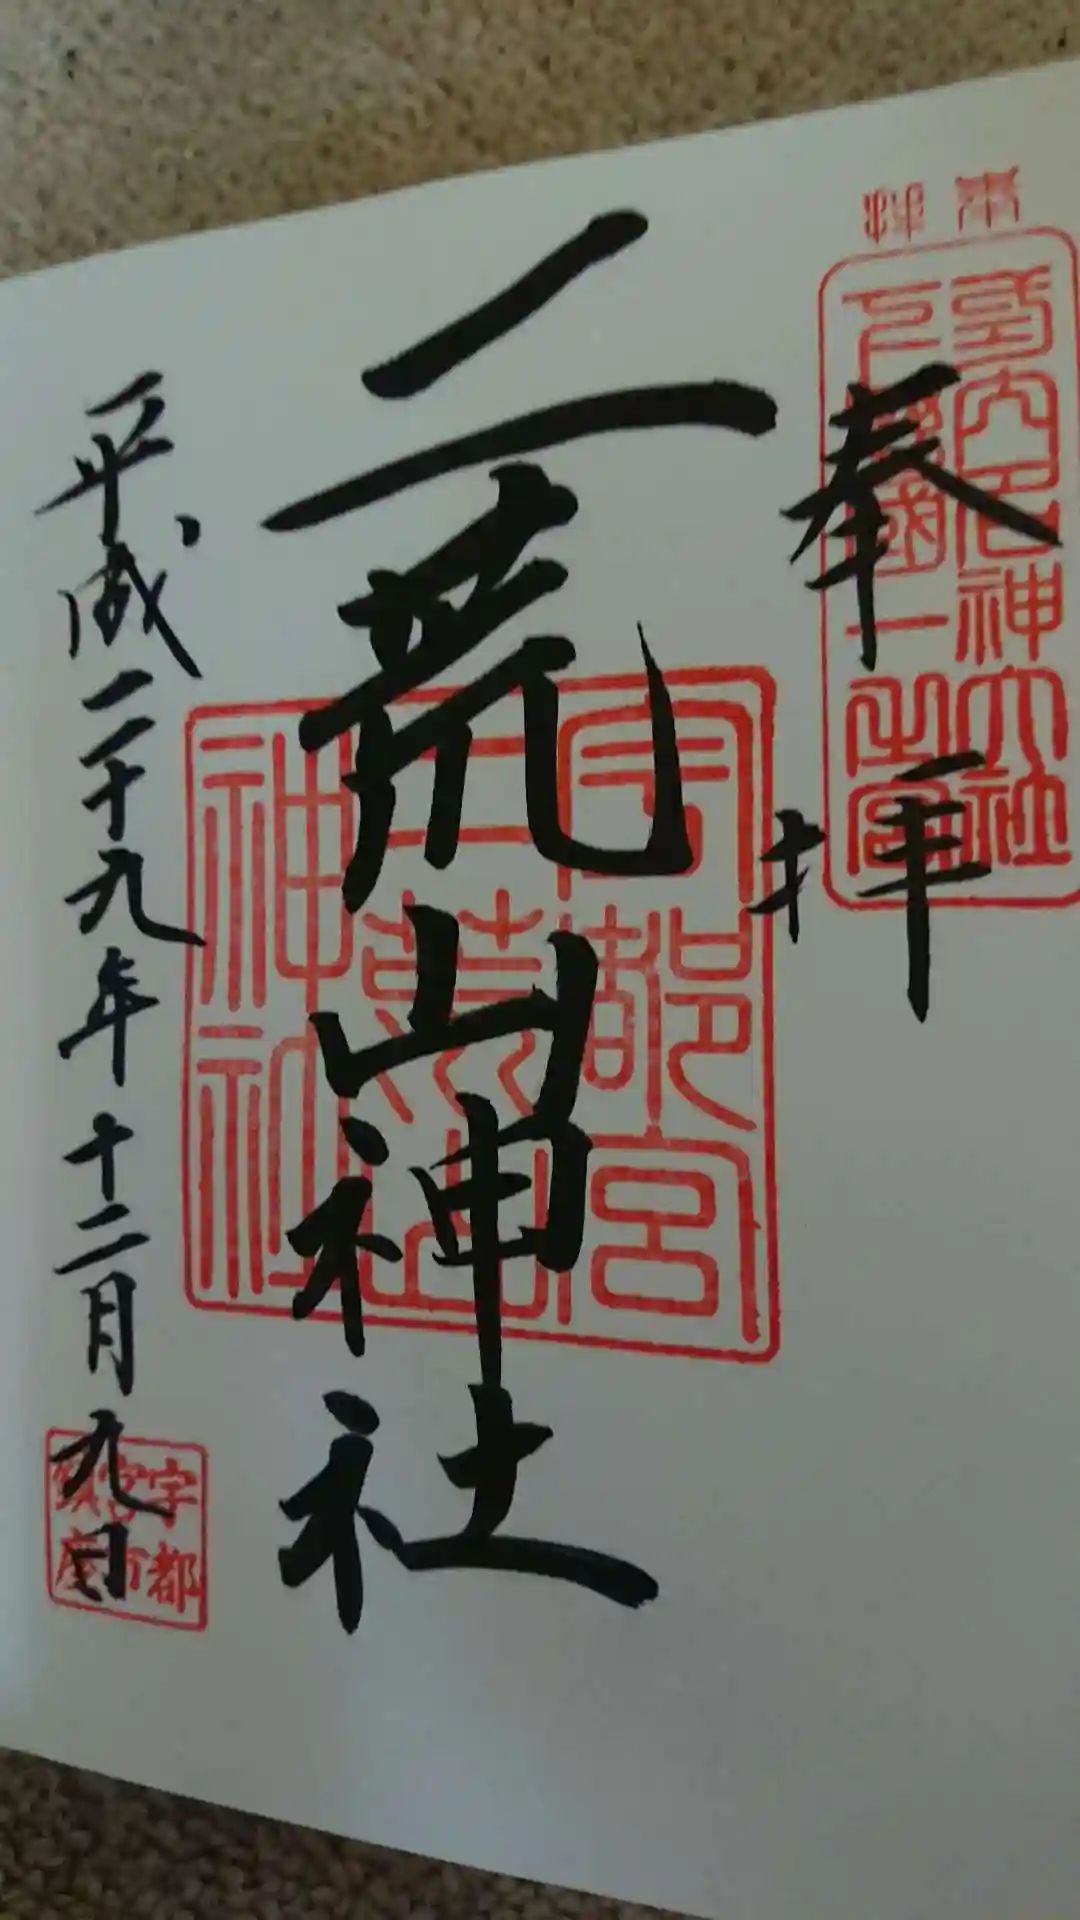 奉拝
延喜式内名神大社
下野國一之宮
二荒山神社
宇都宮
二荒山
神社
平成二十九年十二月九日
宇都
宮市
鎮座